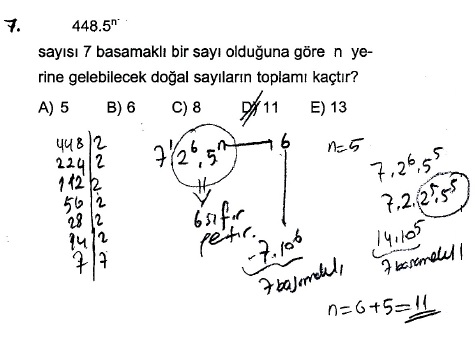 7. 448.5ⁿ
sayısı 7 basamaklı bir sayı olduğuna göre n ye-
rine gelebilecek doğal sayıların toplamı kaçtır?
A) 5 B) 6 C) 8 D) 11 E) 13
448 | 2
224 | 2
112 | 2
56 | 2
28 | 2
14 | 2
7 | 7
7¹ 2⁶ . 5ⁿ → 6
6 sıfır
getir.
7.10⁶
7 basamaklı
n=5
7.2⁶.5⁵
7.2.2⁵.5⁵
14.10⁵
7 basamaklı
n=6+5=11